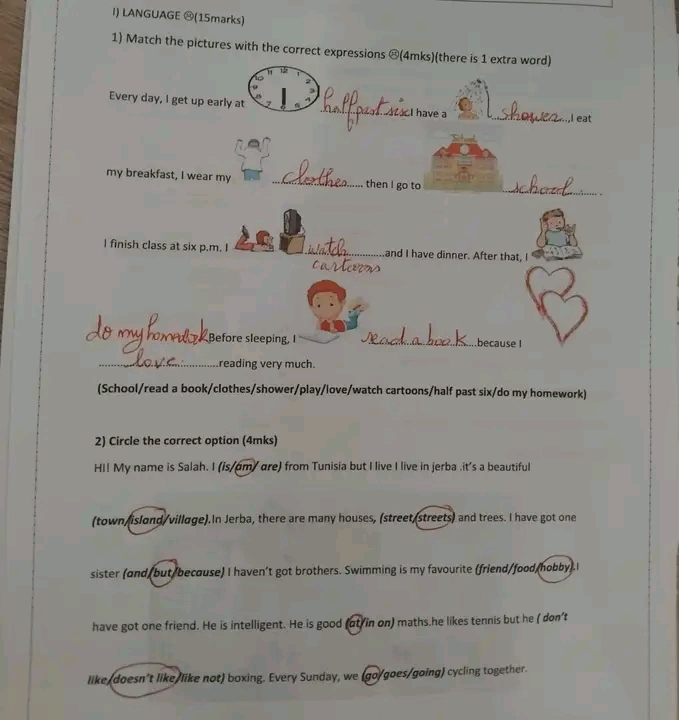 I) LANGUAGE ☹(15marks)
1) Match the pictures with the correct expressions ☹(4mks)(there is 1 extra word)
Every day, I get up early at half past six I have a ...shower..,I eat
my breakfast, I wear my ...clothes...... then I go to ...school.........
I finish class at six p.m. I ..watch............and I have dinner. After that, I
cartoons
do my homework Before sleeping, I read a book....because I
.........love..............reading very much.
(School/read a book/clothes/shower/play/love/watch cartoons/half past six/do my homework)
2) Circle the correct option (4mks)
HI! My name is Salah. I (is/am/ are) from Tunisia but I live I live in jerba .it's a beautiful
(town/island/village).In Jerba, there are many houses, (street/streets) and trees. I have got one
sister (and/but/because) I haven't got brothers. Swimming is my favourite (friend/food/hobby).I
have got one friend. He is intelligent. He is good (at/in on) maths.he likes tennis but he ( don't
like/doesn't like/like not) boxing. Every Sunday, we (go/goes/going) cycling together.